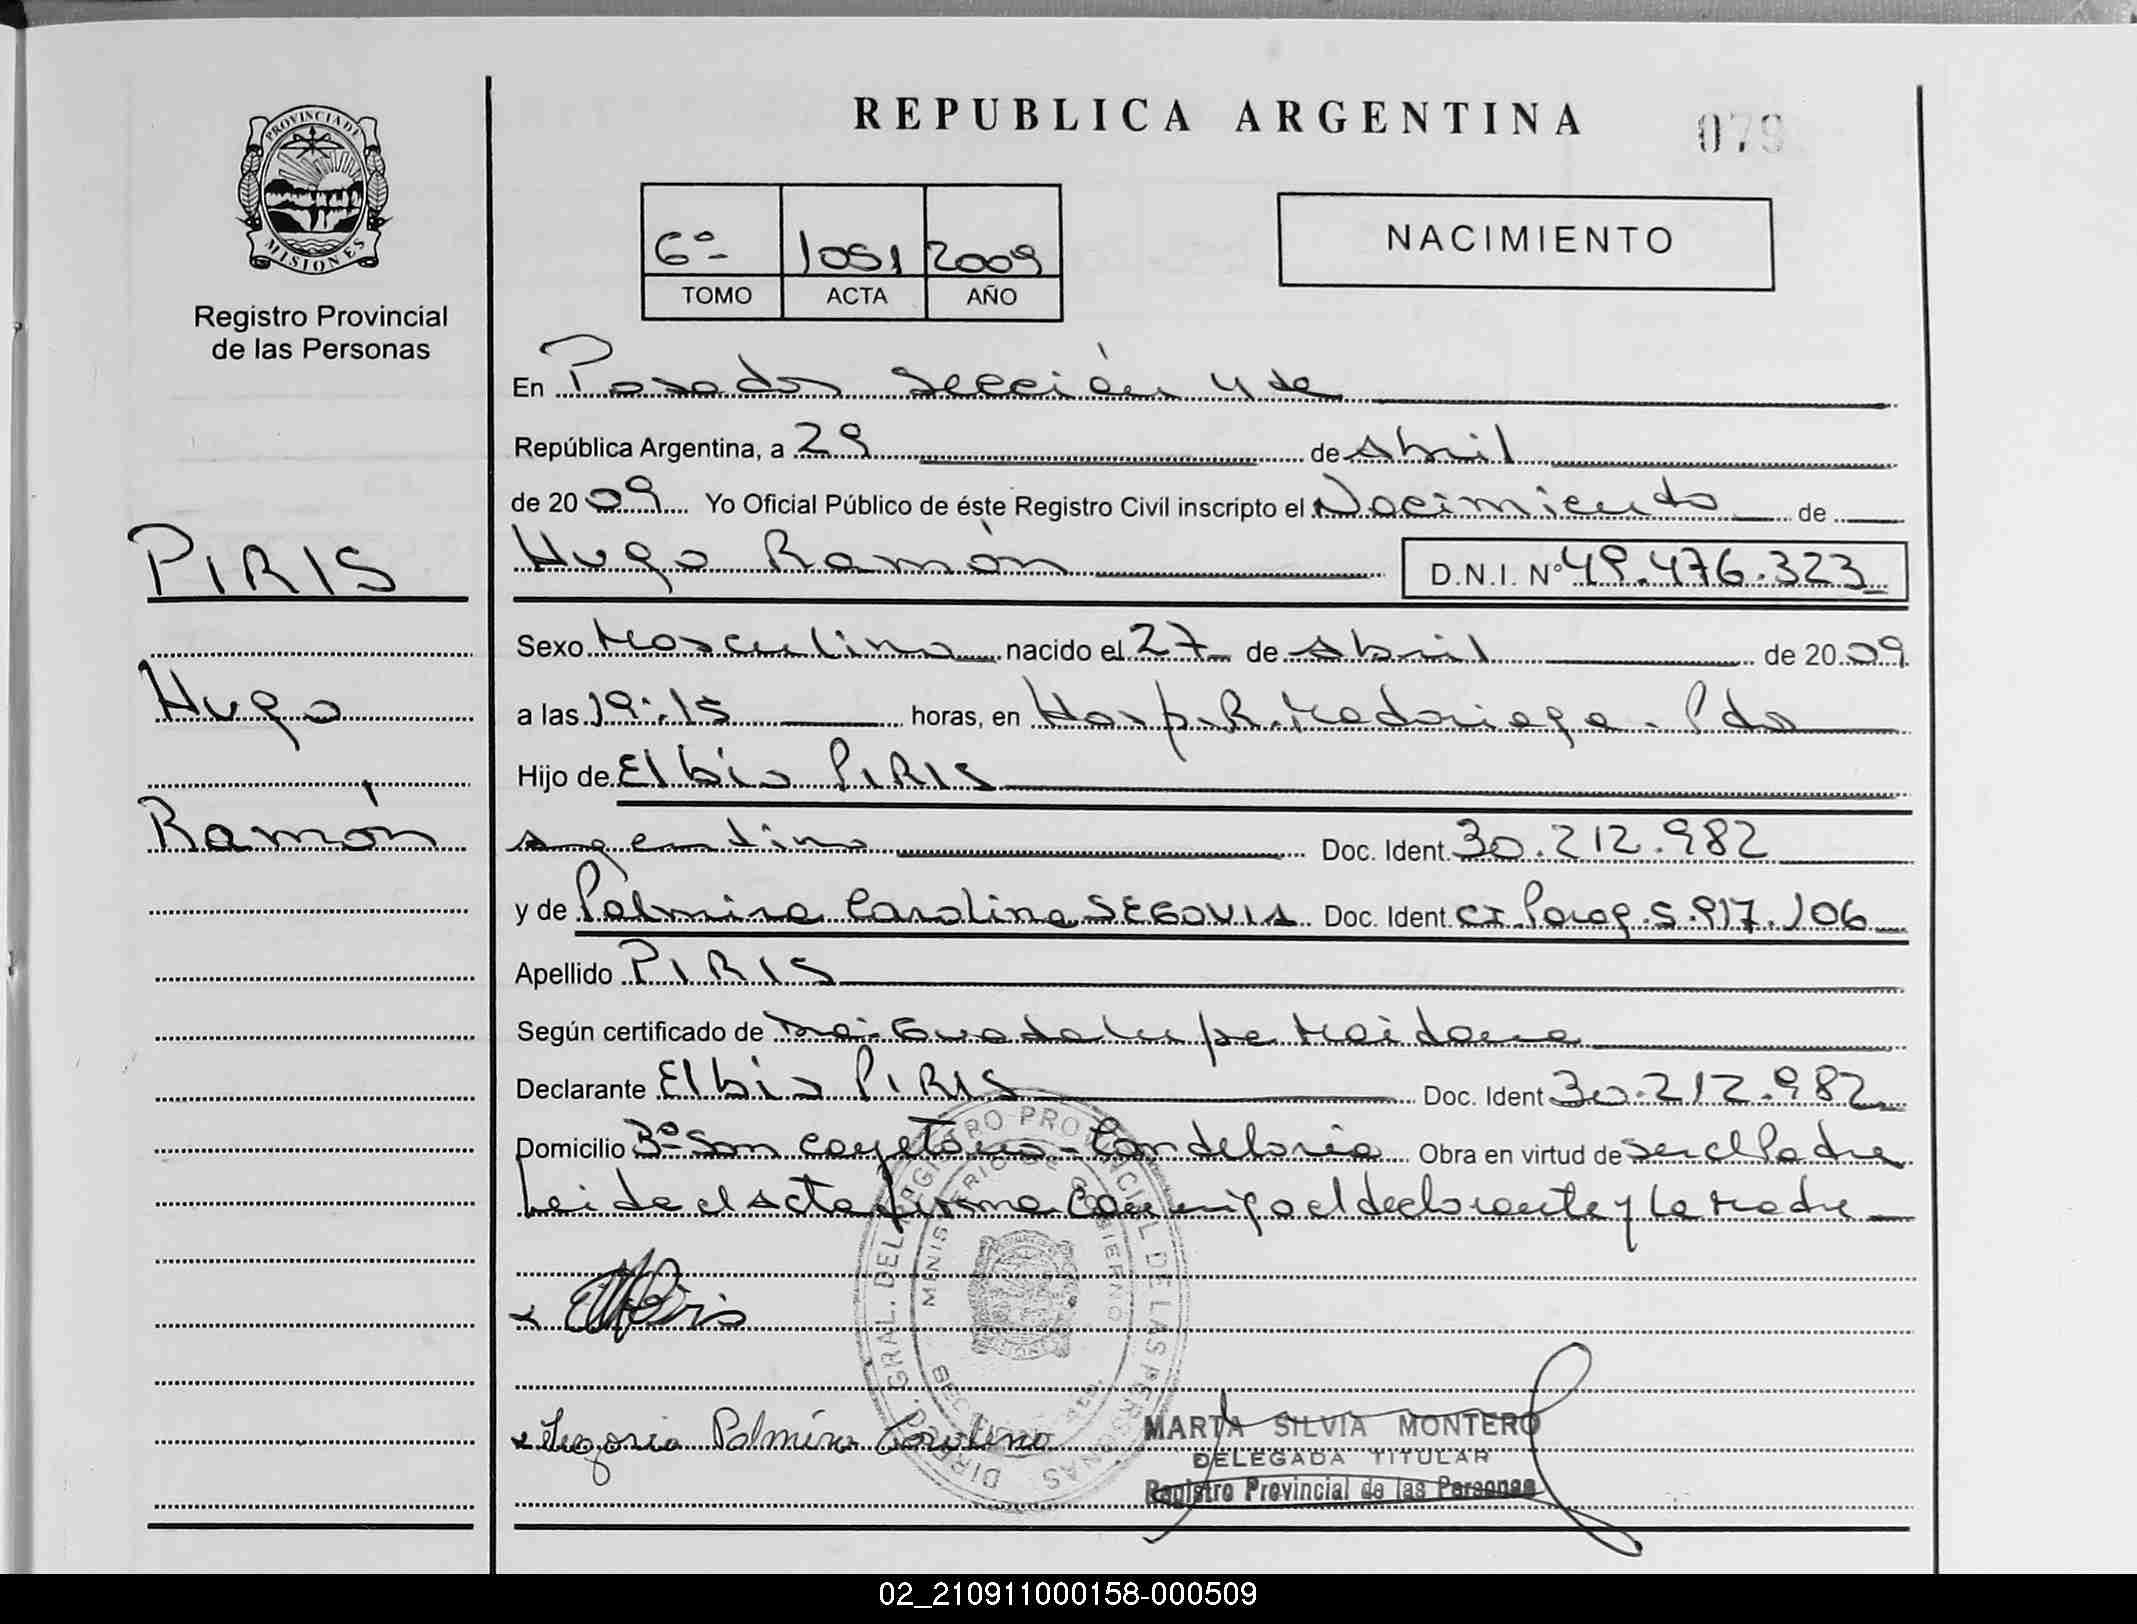 REPUBLICA ARGENTINA
079
PROVINCIA DE
MISIONES
Registro Provincial
de las Personas
6º 1051 2009
TOMO ACTA AÑO
NACIMIENTO
En Posadas Sección 4 ta
República Argentina, a 29 de Abril
de 2009 Yo Oficial Público de éste Registro Civil inscripto el Nacimiento de
Hugo Ramón D.N.I. Nº 49.476.323
PIRIS
Hugo
Ramón
Sexo Masculino nacido el 27 de Abril de 2009
a las 19:15 horas, en Hosp. R. Madariaga - Pdas
Hijo de Elbio PIRIS
Argentino Doc. Ident. 30.212.982
y de Palmira Carolina SEGOVIA Doc. Ident. CI. Parag. 5.917.106
Apellido PIRIS
Según certificado de Guadalupe Maidana
Declarante Elbio PIRIS Doc. Ident 30.212.982
Domicilio Bº San Cayetano - Candelaria Obra en virtud de ser el Padre
Leida el Acta firma Conmigo el declarante y la Madre
x EPiris
x Segovia Palmira Carolina
DIREC. GRAL. DEL REGISTRO PROVINCIAL DE LAS PERSONAS
MINISTERIO DE GOBIERNO
MARTA SILVIA MONTERO
DELEGADA TITULAR
Registro Provincial de las Personas
02_210911000158-000509